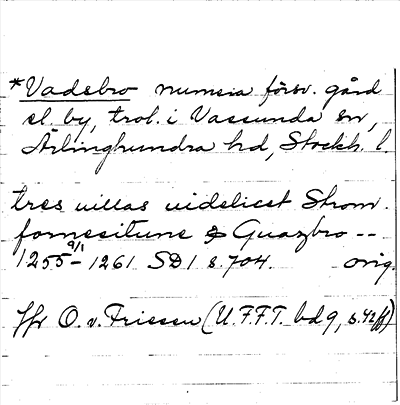 *Vadsbro numera försv. gård
el. by, trol. i Vassunda sn,
Ärlinghundra hd, Stockh. l.
tres uillas uidelicet Strom.
fornesitune & Guazbro --
1255 9/1 - 1261 SD 1 s. 704. orig.
Jfr O. v. Friesen (U.F.F.T. bd 9, s. 42 ff)